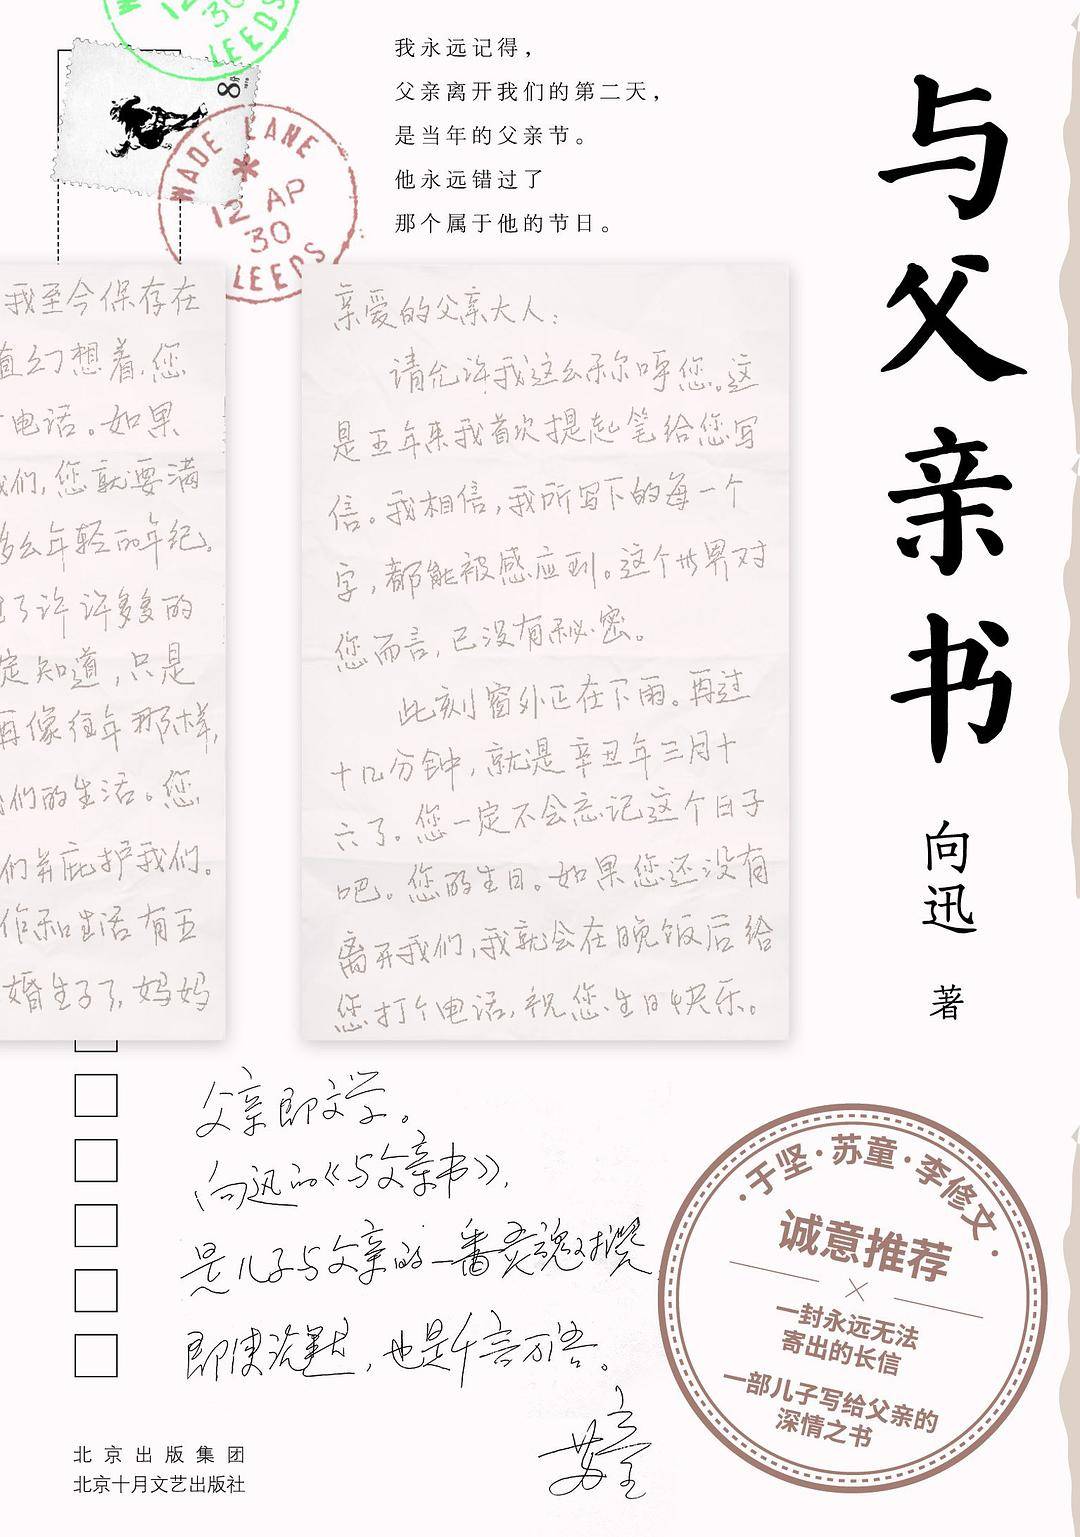 与父亲书
向迅
著
我永远记得，
父亲离开我们的第二天，
是当年的父亲节。
他永远错过了
那个属于他的节日。
8
12
30
LEEDS
WADE LANE
12 AP
30
LEEDS
我至今保存在
幻想着,您
电话。如果
们,您就要满
多么年轻的年纪。
了许许多多的
定知道,只是
再像往年那样,
我们的生活。您
们并庇护我们。
作和生活有五
婚生子了,妈妈
亲爱的父亲大人:
请允许我这么称呼您。这
是五年来我首次提起笔给您写
信。我相信,我所写下的每一个
字,都能被感应到。这个世界对
您而言,已没有秘密。
此刻窗外正在下雨。再过
十几分钟,就是辛丑年三月十
六了。您一定不会忘记这个日子
吧。您的生日。如果您还没有
离开我们,我就会在晚饭后给
您打个电话,祝您生日快乐。
父亲即文学。
向迅的《与父亲书》,
是儿子与父亲的一番灵魂对撰,
即使沉默,也是千言万语。
苏童
·于坚·苏童·李修文·
诚意推荐
一封永远无法
寄出的长信
一部儿子写给父亲的
深情之书
北京出版集团
北京十月文艺出版社